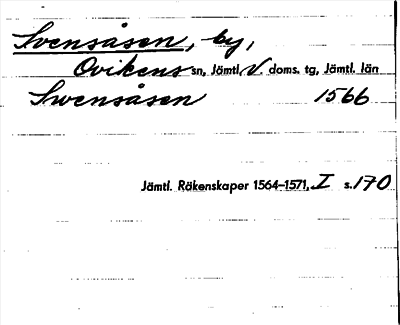 Svensåsen, by,
Ovikens sn, Jämtl. V. doms. tg, Jämtl. län
Swensåsen 1566
Jämtl. Räkenskaper 1564-1571, I s. 170